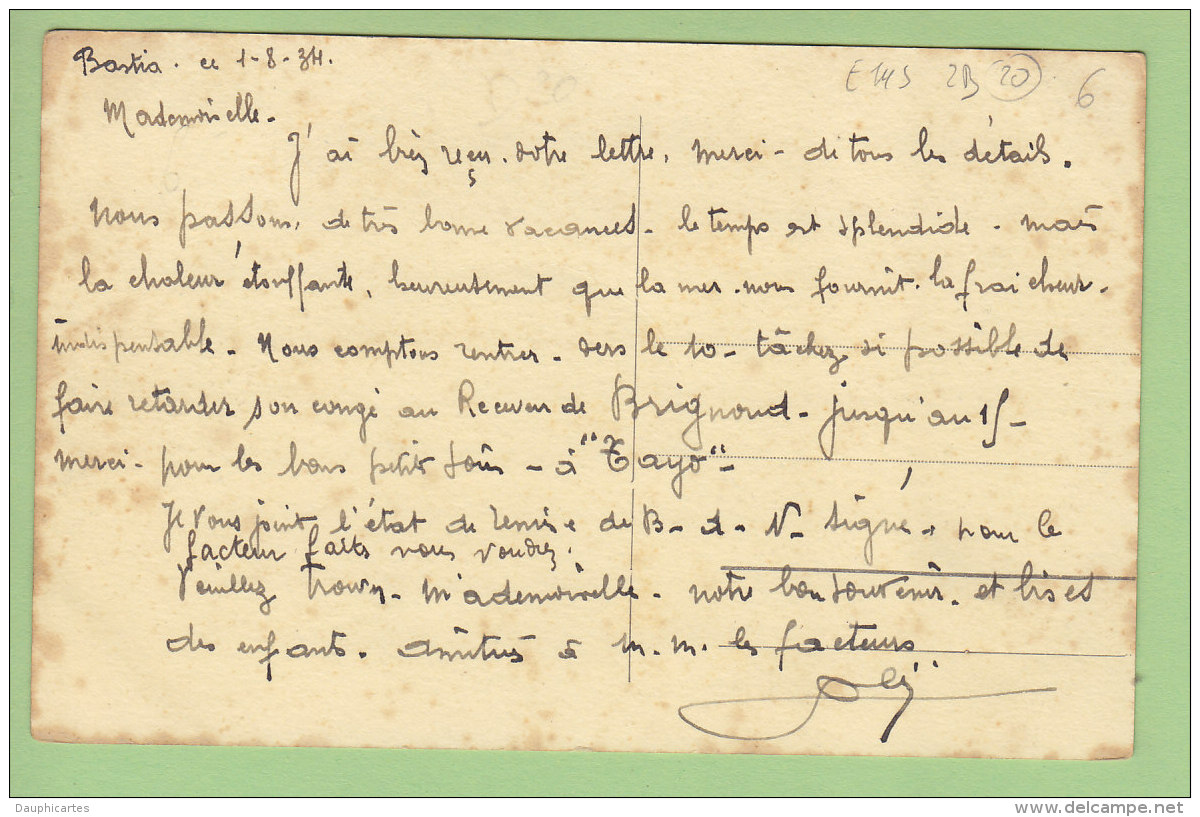 Bastia. ce 1-8-34.
E 145 2B 20 6
Mademoiselle.
J'ai bien reçu. votre lettre, merci - de tous les détails.
Nous passons, de très bonne vacances - le temps est splendide - mais
la chaleur étouffante, heureusement que la mer. nous fournit. la fraicheur.
indispensable - Nous comptons rentrer - vers le 10 - tâchez si possible de
faire retarder son congé au Receveur de Brignoud - jusqu'au 15 -
merci - pour les bons petits soins - à "Tayo" -
Je vous joint l'état de remise de B - d - N - signé, pour le
facteur faits vous voudrez.
Veuillez trouver - Mademoiselle - notre bon souvenir. et bises
des enfants. amitiés à M.M. les facteurs
Dauphicartes
www.delcampe.net